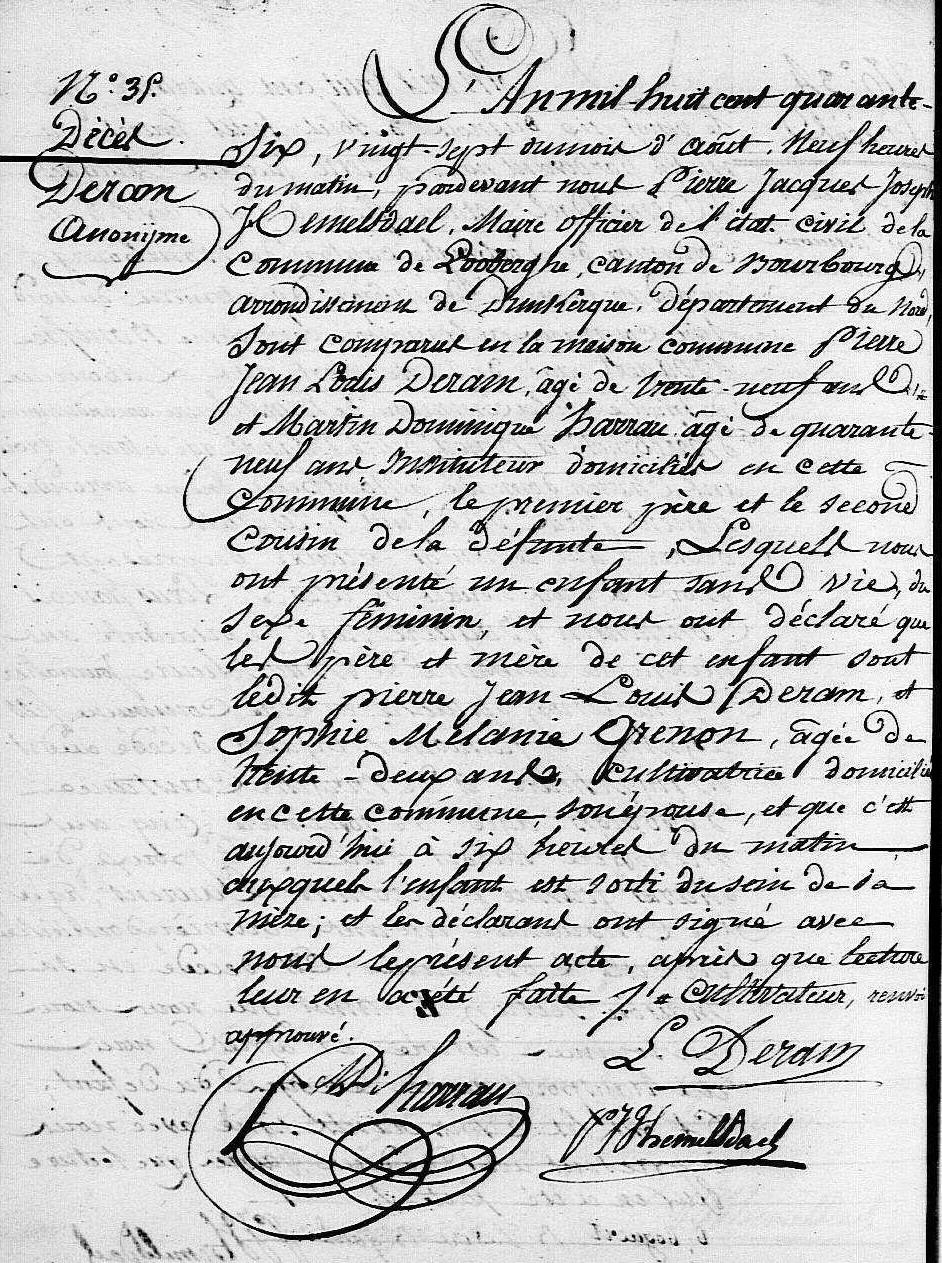 N.° 35.
Décès.
Deram
Anonijme
L'An mil huit cent quarante-
six, vingt-sept du mois d'août, Neuf heures
du matin, pardevant nous Pierre Jacques Joseph
Hemelsdael, Maire officier de l'état civil de la
Commune de Looberghe, canton de Bourbourg,
arrondissement de Dunkerque, département du Nord,
Sont comparus en la maison commune Pierre
Jean Louis Deram, âgé de trente-neuf ans *
et Martin Dominique harrau, âgé de quarante-
neuf ans Instituteur domiciliés en cette
Commune, le premier père et le second
Cousin de la défunte, Lesquels nous
ont présenté un enfant sans vie, du
sexe féminin, et nous ont déclaré que
les père et mère de cet enfant sont
ledit pierre Jean Louis Deram, et
Sophie Mélanie Grenon, âgée de
trente-deux ans, cultivatrice domiciliée
en cette commune, son épouse, et que c'est
aujourd'hui à six heures du matin
auxquels l'enfant est sorti du sein de sa
mère; et les déclarans ont signé avec
nous le présent acte, après que lecture
leur en a été faite * Cultivateur, renvoi
approuvé.
L Deram
MDharrau
PJJhemelsdael